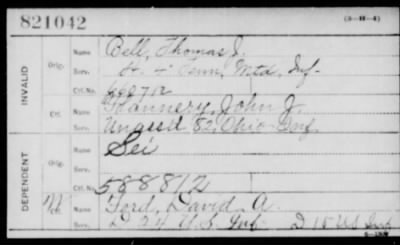 821042
(3-H-4)
INVALID
Orig.
Name Bell, Thomas J.
Serv. H. 4" Tenn. Mtd. Inf.
Ctf. No.
Ctf.
Name Flannery, John J.
Serv. Unassd 82, Ohio Inf.
DEPENDENT
Orig.
Name Sei
Serv.
Ctf. No. 588812
W Ctf.
Name Ford, David A.
D 24 U.S. Inf. D 15 US Inf.